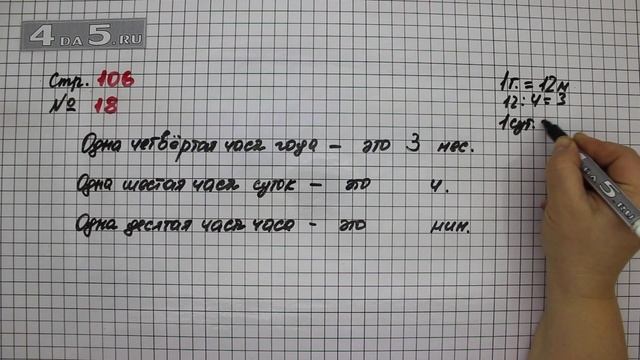 4 DA 5.RU
Стр. 106
№ 18
1г. = 12м
12 : 4 = 3
1сут.
Одна четвёртая часть года – это 3 мес.
Одна шестая часть суток – это ч.
Одна десятая часть часа - это мин.
DA 5.RU